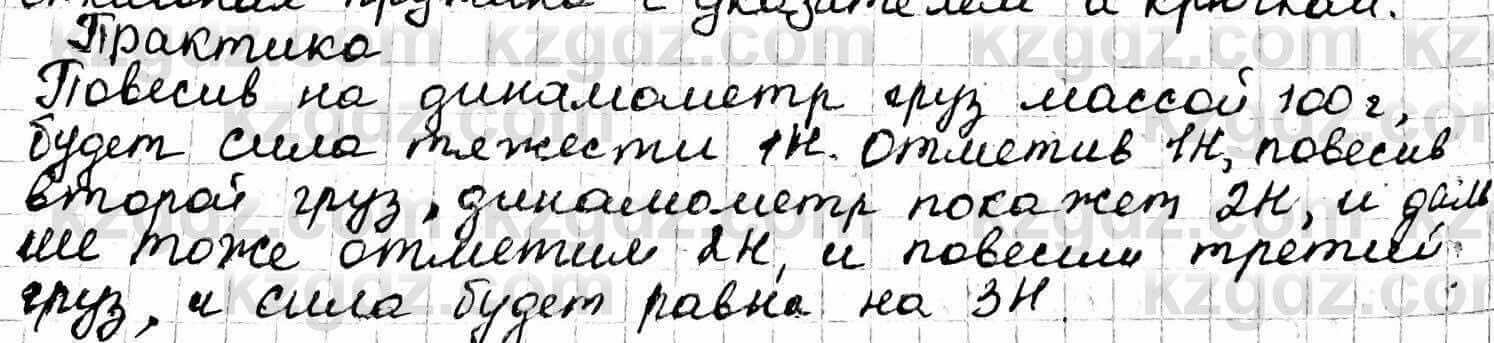 пружина с указателем и крючком.
Практика
Повесив на динамометр груз массой 100 г,
будет сила тяжести 1Н. Отметив 1Н, повесив
второй груз, динамометр покажет 2Н, и даль
ше тоже отметим 2Н, и повесим третий
груз, и сила будет равна на 3Н.